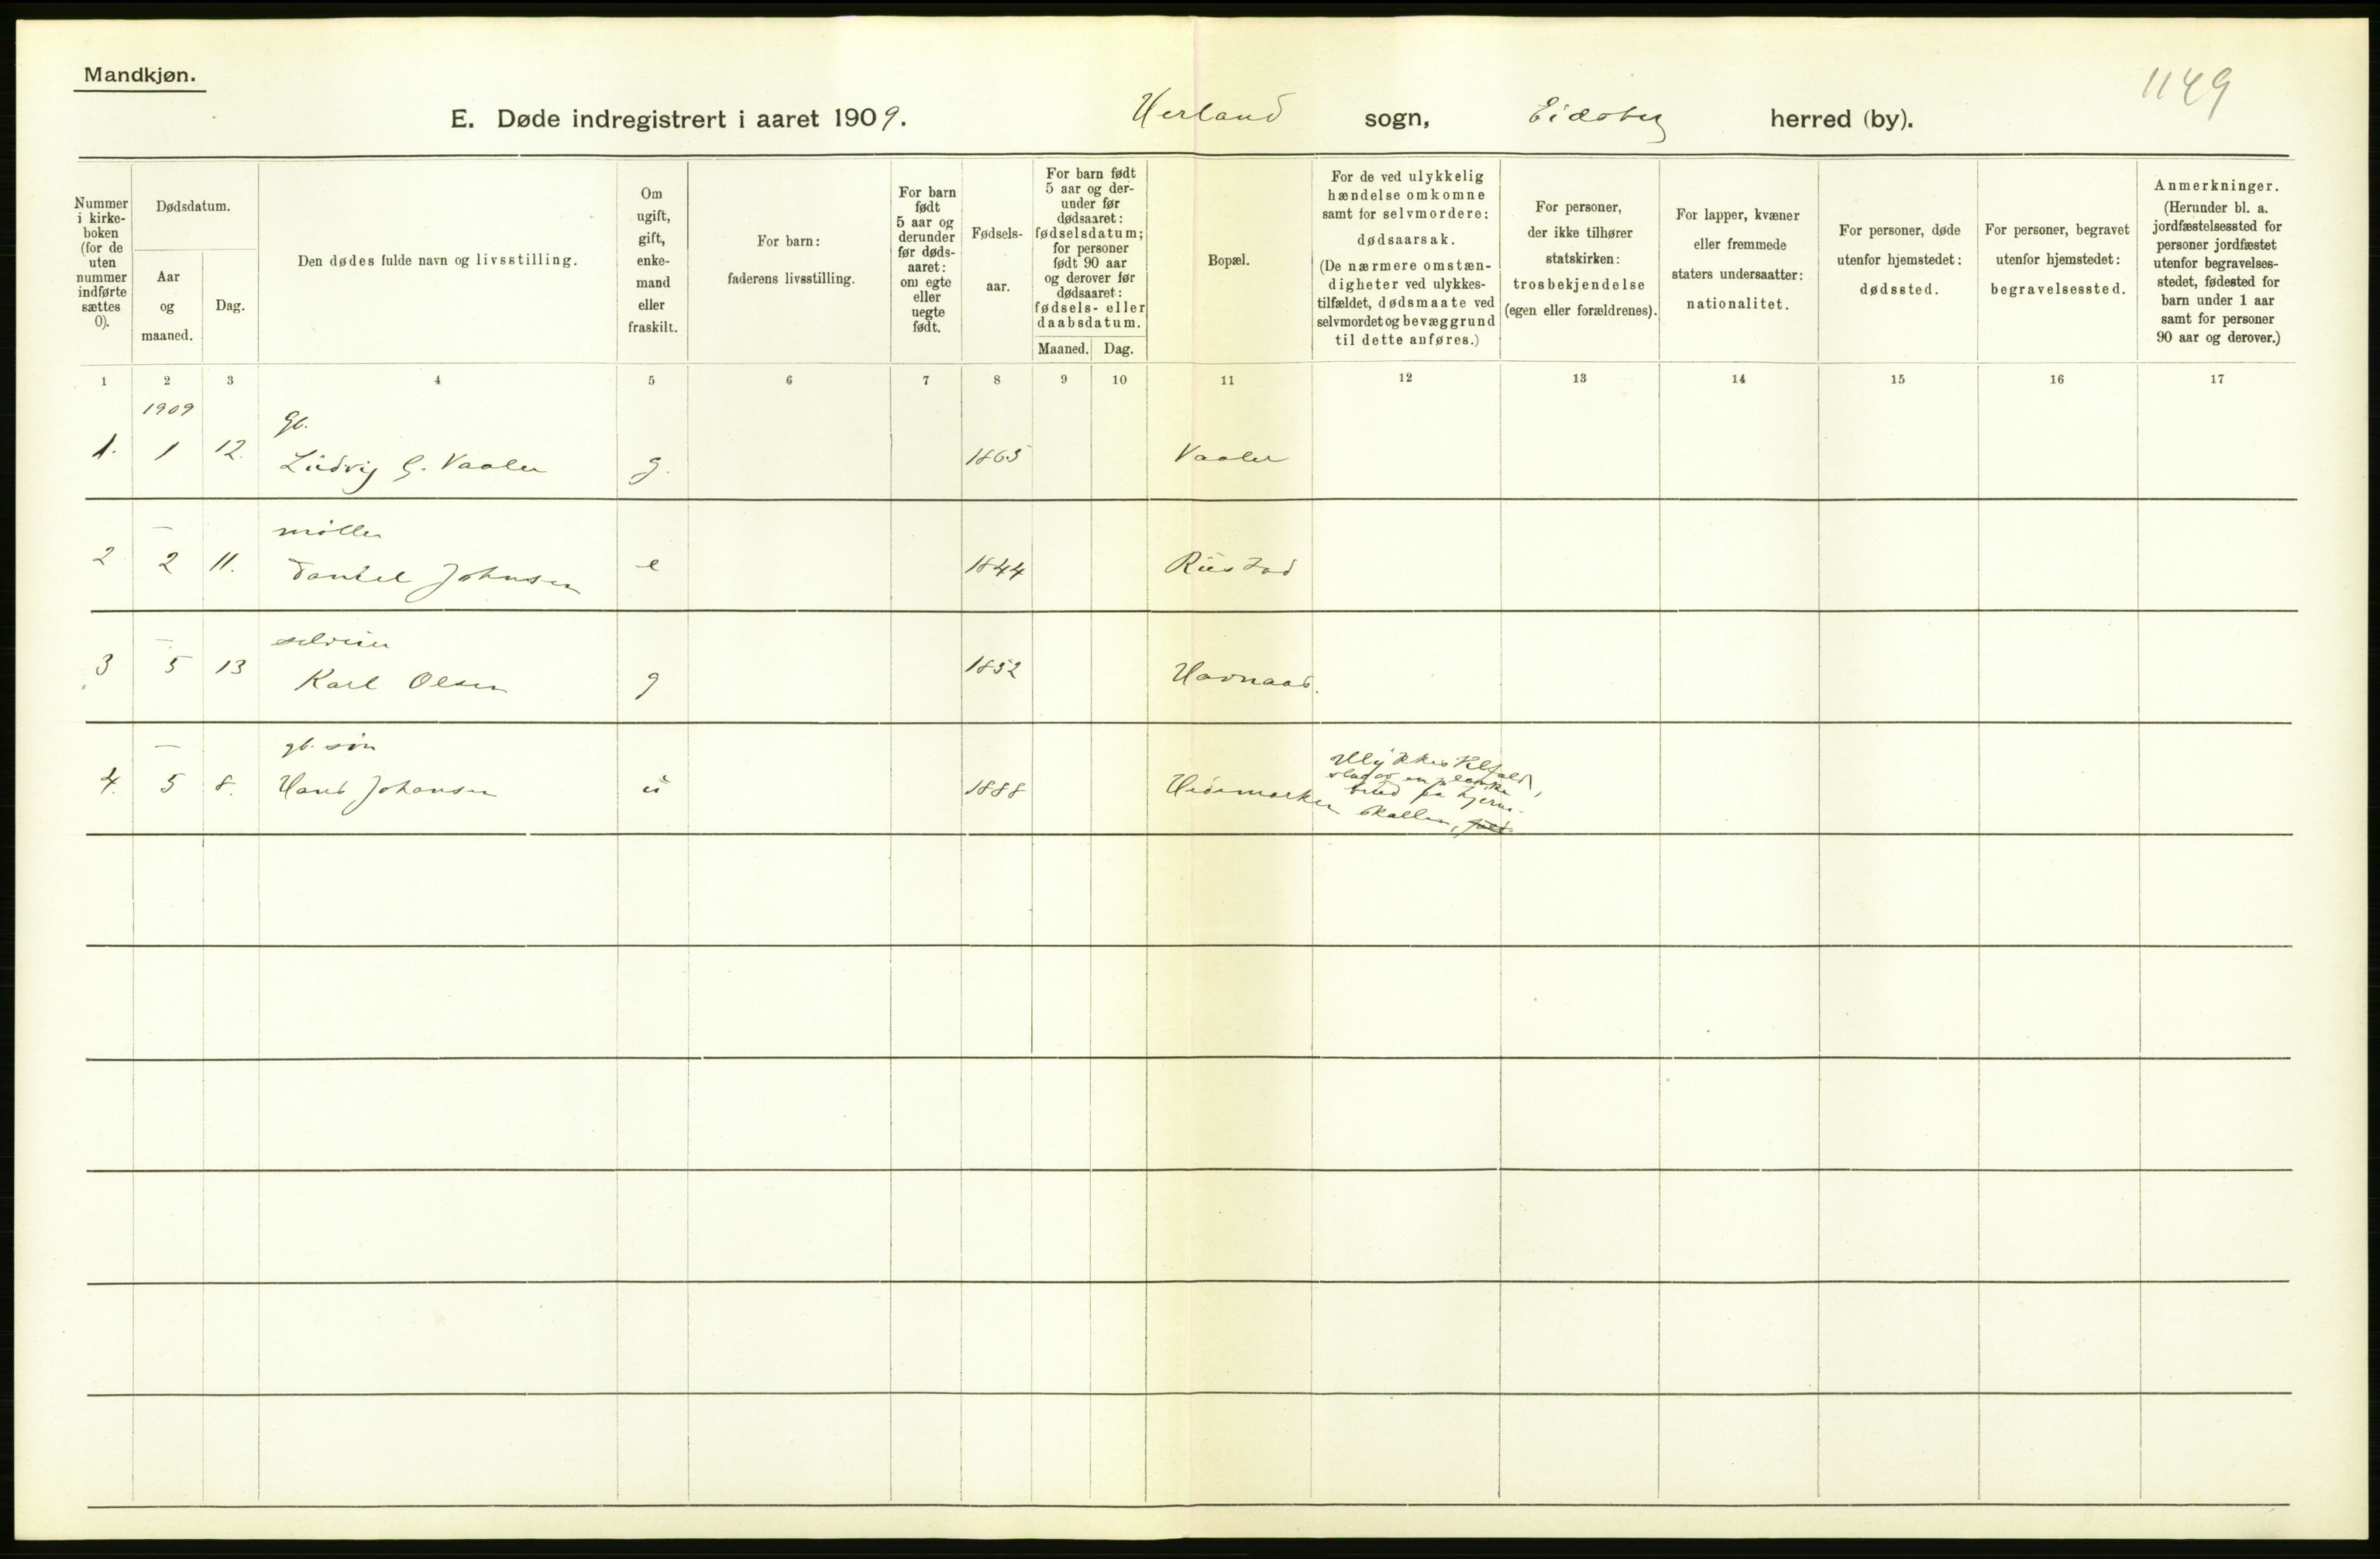 Mandkjøn.
1149
E. Døde indregistrert i aaret 1909. Herland sogn, Eidsberg herred (by).
Nummer i kirkeboken (for de uten nummer indførte sættes 0).
Dødsdatum.
Aar og maaned.
Dag.
Den dødes fulde navn og livsstilling.
Om ugift, gift, enkemand eller fraskilt.
For barn: faderens livsstilling.
For barn født 5 aar og derunder før dødsaaret: om egte eller uegte født.
Fødselsaar.
For barn født 5 aar og derunder før dødsaaret: fødselsdatum; for personer født 90 aar og derover før dødsaaret: fødsels- eller daabsdatum.
Maaned. Dag.
Bopæl.
For de ved ulykkelig hændelse omkomne samt for selvmordere: dødsaarsak. (De nærmere omstændigheter ved ulykkestilfældet, dødsmaate ved selvmordet og bevæggrund til dette anføres.)
For personer, der ikke tilhører statskirken: trosbekjendelse (egen eller forældrenes).
For lapper, kvæner eller fremmede staters undersaatter: nationalitet.
For personer, døde utenfor hjemstedet: dødssted.
For personer, begravet utenfor hjemstedet: begravelsessted.
Anmerkninger. (Herunder bl. a. jordfæstelsessted for personer jordfæstet utenfor begravelsesstedet, fødested for barn under 1 aar samt for personer 90 aar og derover.)
1 2 3 4 5 6 7 8 9 10 11 12 13 14 15 16 17
1909
Gb.
1. 1 12. Ludvig G. Vaaler g. 1865 Vaaler
— møller
2 2 11. Daniel Johnsen e 1844 Rustad
— selveier
3 5 13 Karl Olsen g 1852 Havnaas.
— gb. søn
4. 5 8. Hans Johansen u 1888 Hedemarken
Ulykkestilfæld,
slag av en planke
brud på hjerne-
skallen,